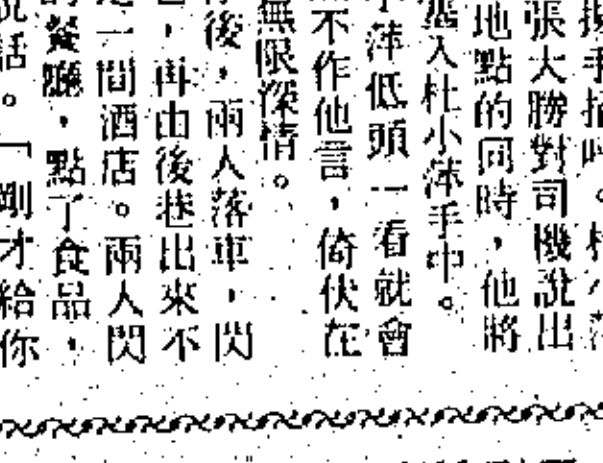 揚手招呼。杜小萍
張大勝對司機說出
地點的同時，他將
塞入杜小萍手中。
小萍低頭一看就會
不作他言，倚伏在
無限深情。
後，兩人落車，閃
，再由後巷出來不
一間酒店。兩人閃
的餐廳，點了食品，
說話。「剛才給你